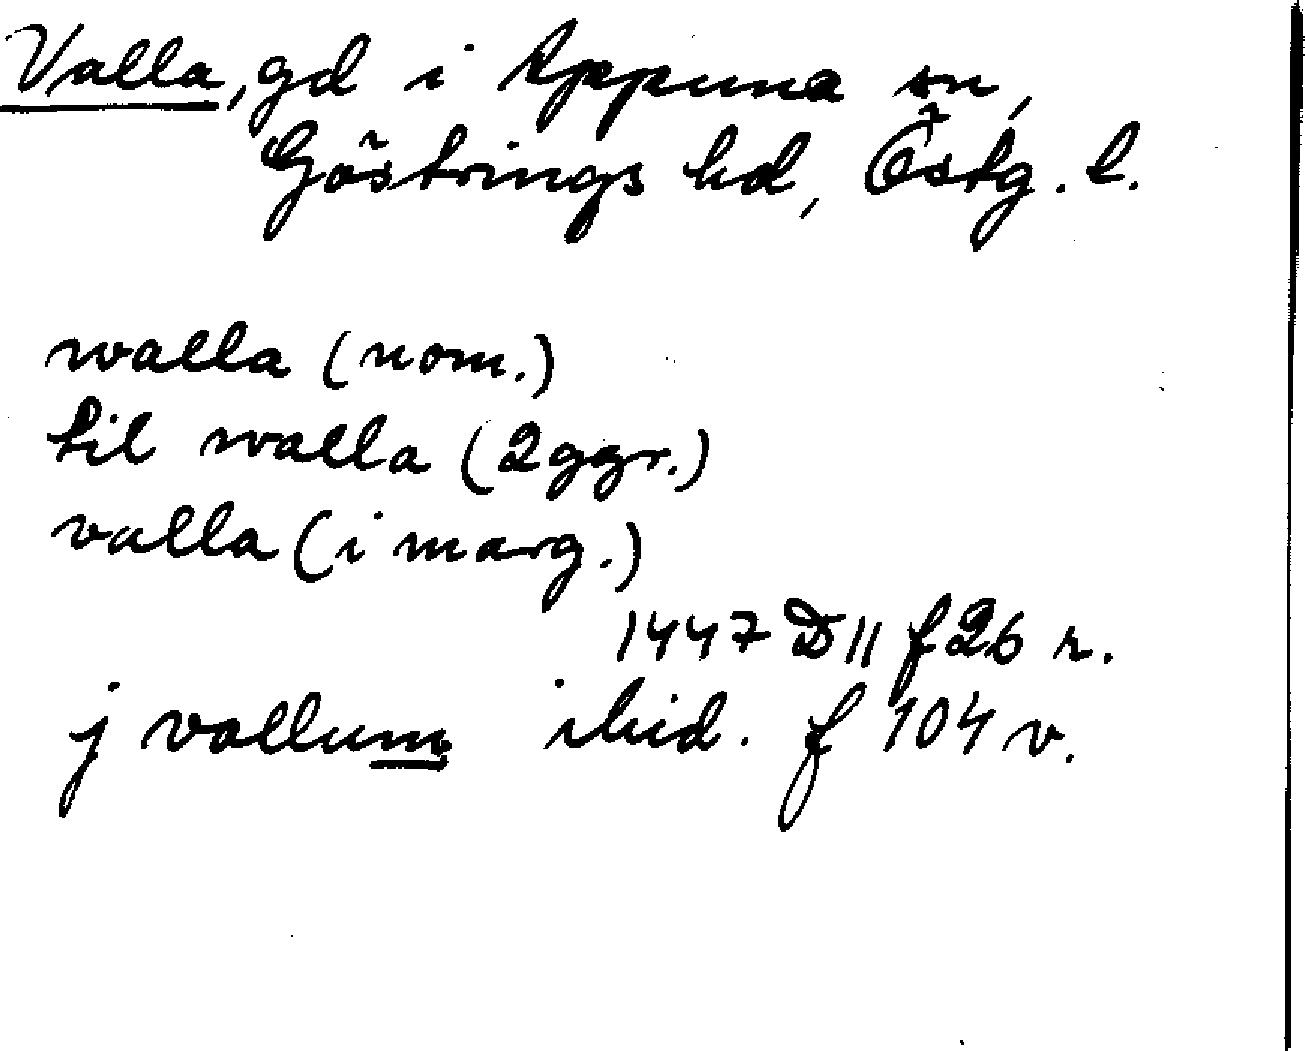 Valla, gd i Appuna sn,
Göstrings hd, Östg. l.
walla (nom.)
til walla (2 ggr.)
valla (i marg.)
1447 D 11 f 26 r.
j vallum ibid. f 104 v.